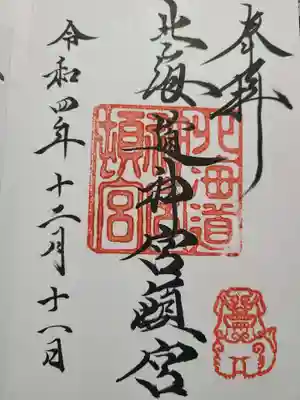 奉拝
北海道神宮頓宮
令和四年十二月十八日
北海道
神宮
頓宮